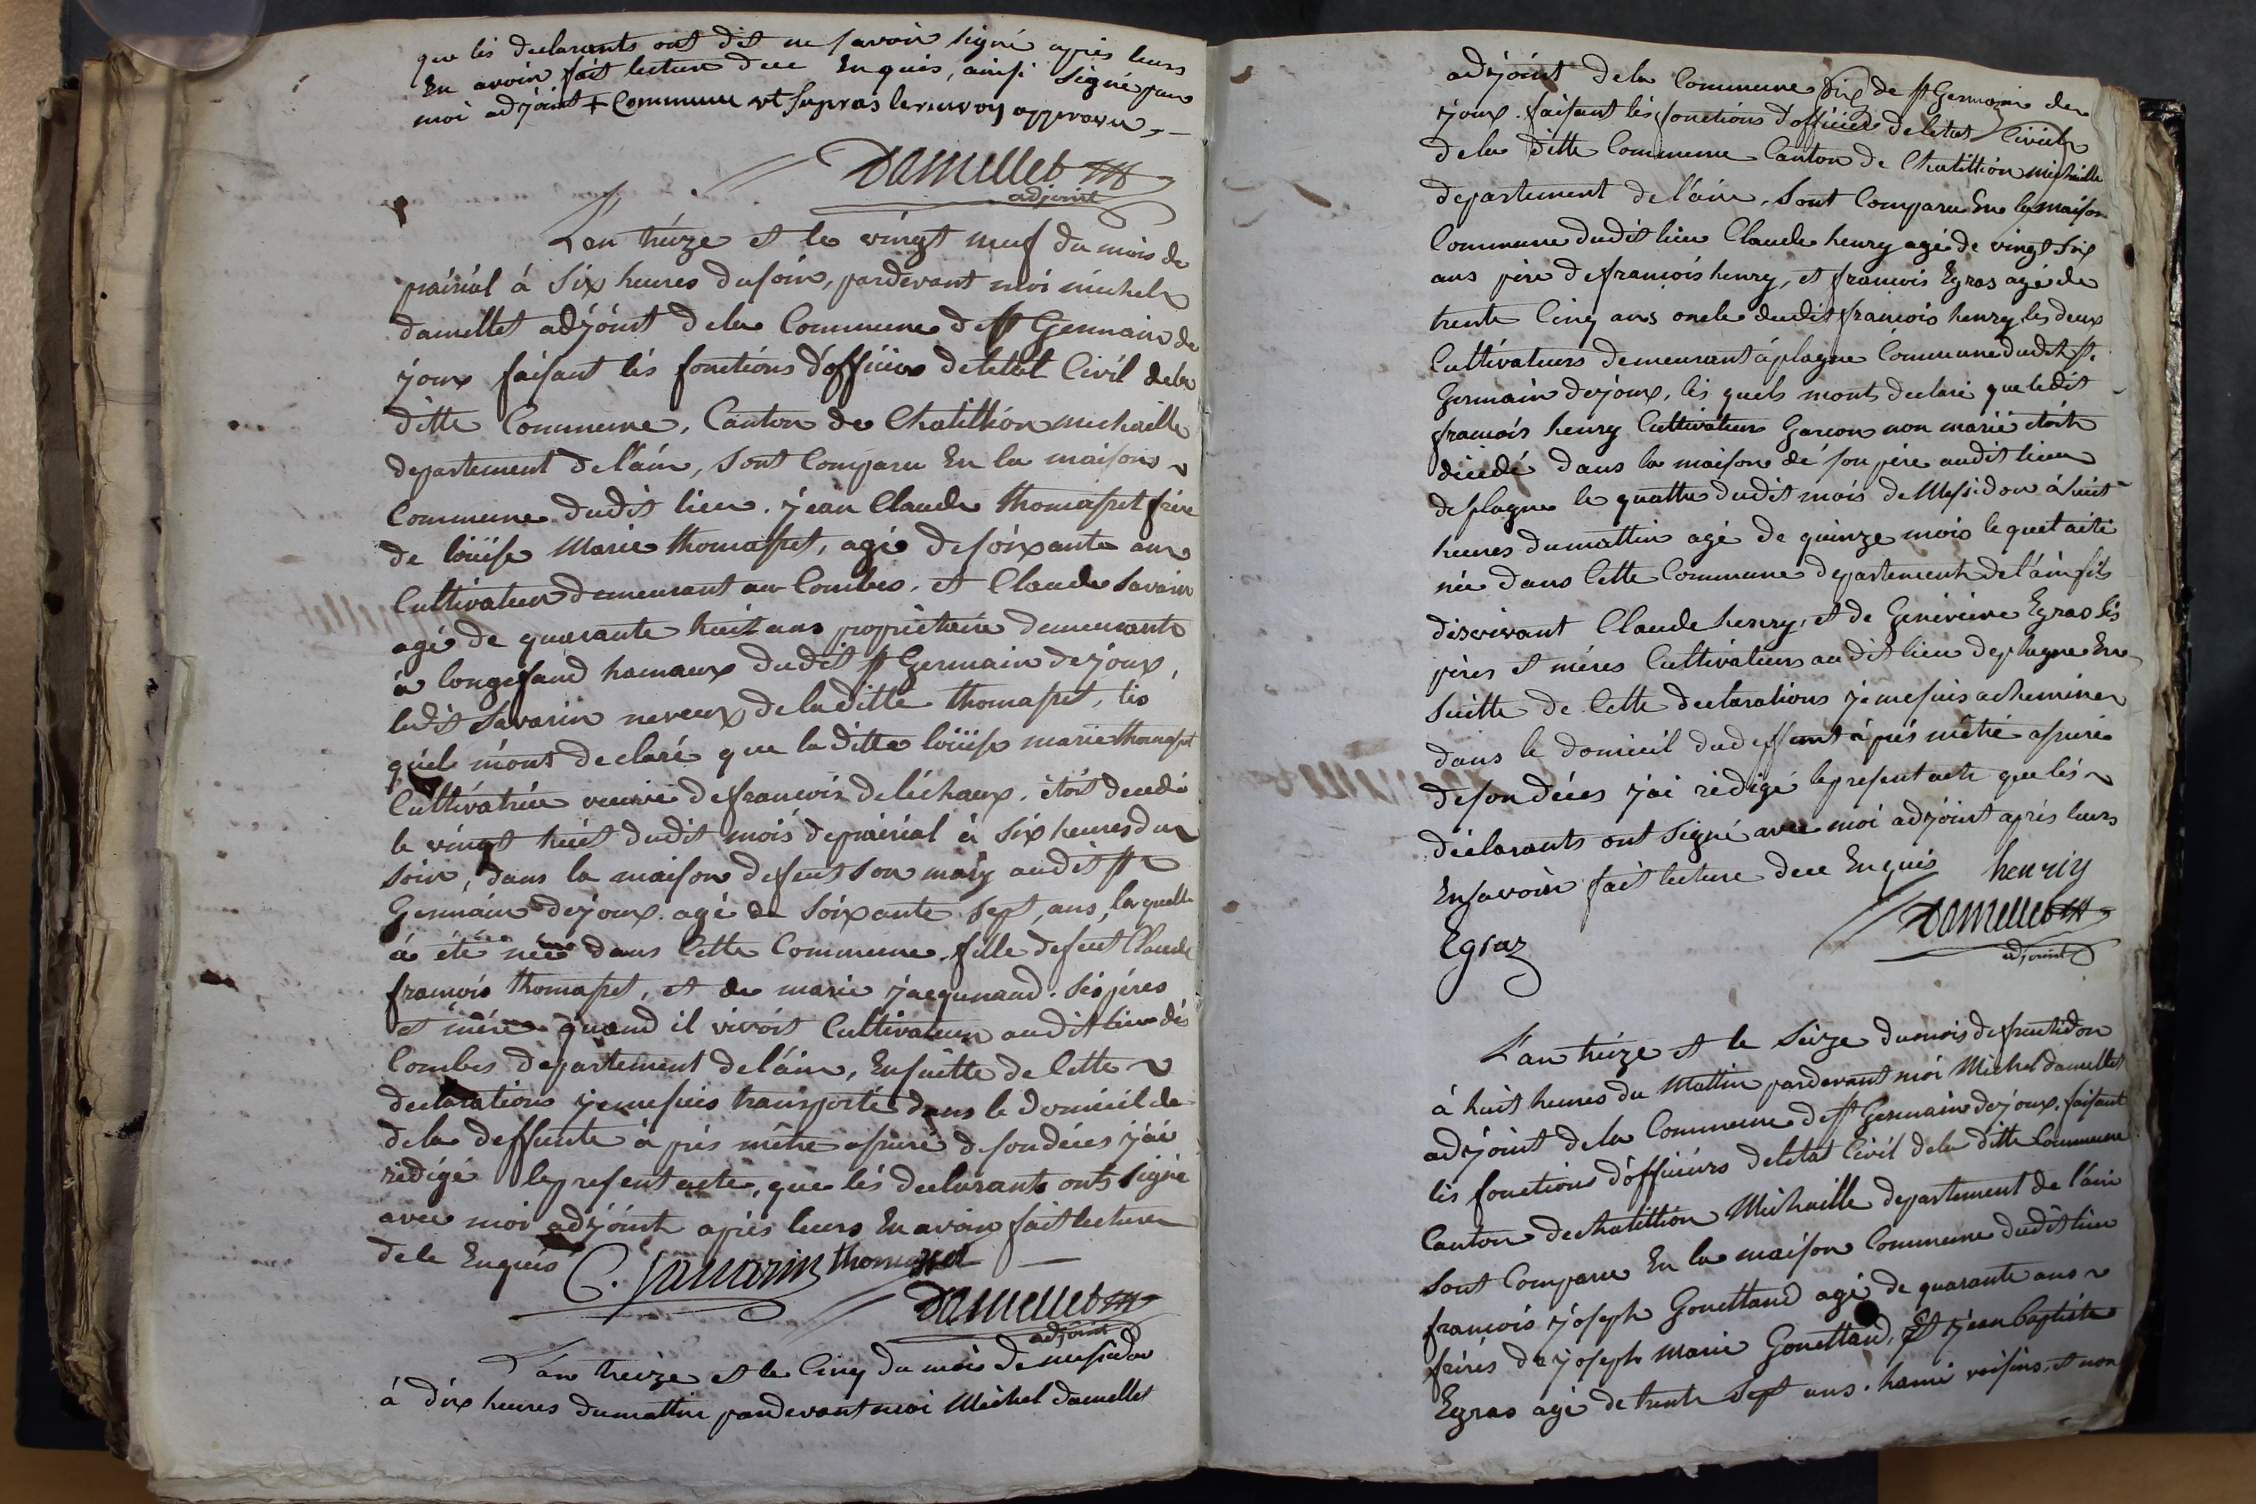 que lés declarants ont dit ne savoir signé après leurs
En avoir fait lecture dece Enquis, ainsi signé par
moi adjoint + Commune ut supras le renvoy approuvé, —
Damellet
adjoint
L'an treize et le vingt neuf du mois de
prairial à six heures dusoir, pardevant moi michel
damellet adjóint dela Commune de St Germain de
joux faisant lés fonctions d'officier deletat Civil dela
ditte Commune, Canton de Chatillion michaille
departement de l'ain, sont Comparu En la maison
Commune dudit lieu. jean Claude thomasset frère
de loüise Marie thomasset, agé desoixante ans
Cultivateur demeurant au Combes. et Claude Savarin
agé de quarante huit ans propriétaire demeurante
à longefand hamaux dudit St Germain dejoux,
ledit Savarin neveux de laditte thomasset, lés
quel m'ont declaré que la ditte loüise marie thomasset
Cultivatrice veuve defrancois deléchaux. étoit decedé
le vingt huit dudit mois deprairial à six heures du
soir, dans la maison defeut son mary audit St
Germain dejoux. agé de soixante sept ans, laquelle
à été née dans Cette Commune. fille defeut Claude
francois thomasset, et de marie jacquenaud. sespères
et mére quand il vivoit Cultivateur audit lieu dés
Combes departement del'ain, Ensuitte de Cette
declarations jemesuis transporté dans le domicil de
dela deffunte à prés métre assuré desondécés j'ai
rédigé lepresent acte, que lés declarants onts signé
avec moi adjóint après leurs En avoir fait lecture
dele Enquis C. Savarin thomasset —
Damellet
adjoint
L'an treize et le Cinq du mois de messidor
à dix heures dumattin pardevant moi Michel damellet
adjóint dela Commune dix de St Germain de
joux. faisant lés fonctions d'officier deletat Civil
dela ditte Commune Canton de Chatillion michaille
departement de l'ain. sont Comparu En la maison
Commune dudit lieu Claude henry agé de vingt six
ans père defrancois henry, et francois Egras agé de
trente Cinq ans oncle dudit francois henry, les deux
Cultivateurs demeurant à plagne Commune dudit St.
Germain dejoux, lés quels monts declaré que ledit
francois henry Cultivateur Garcon non marié étoit
décédé dans la maison dé son père audit lieu
deplagne le quattre dudit mois deMessidor à huit
heures dumattin agé de quinze mois lequel aété
née dans Cette Commune departement de l'ain fils
disvivant Claude henry, et de Genevieve Egras sés
péres et méres Cultivateurs audit lieu deplagne En
suitte de Cette declarations jemesuis acheminer
dans le domicil dudeffunt àprés métré assuré
desondécés j'ai rédigé lepresent acte que lés
déclarants ont signé avec moi adjóint aprés leurs
Ensavoir fait lecture dece Enquis henriy
Damellet
Egraz adjoint
L'an treize et le seize dumois defructidor
à huit heures du Mattin pardevant moi Michel damellet
adjóint dela Commune deSt Germain dejoux. faisant
lés fonctions d'officiérs deletat Civil dela ditte Commune
Canton dechatillion Michaille departement de l'ain
sont Comparu En la maison Commune dudit lieu
francois joseph Gouettand agé de quarante ans
frérés de joseph marie Gouettand, Et jean baptiste
Egras agé de trente sept ans. hami voisins, et non